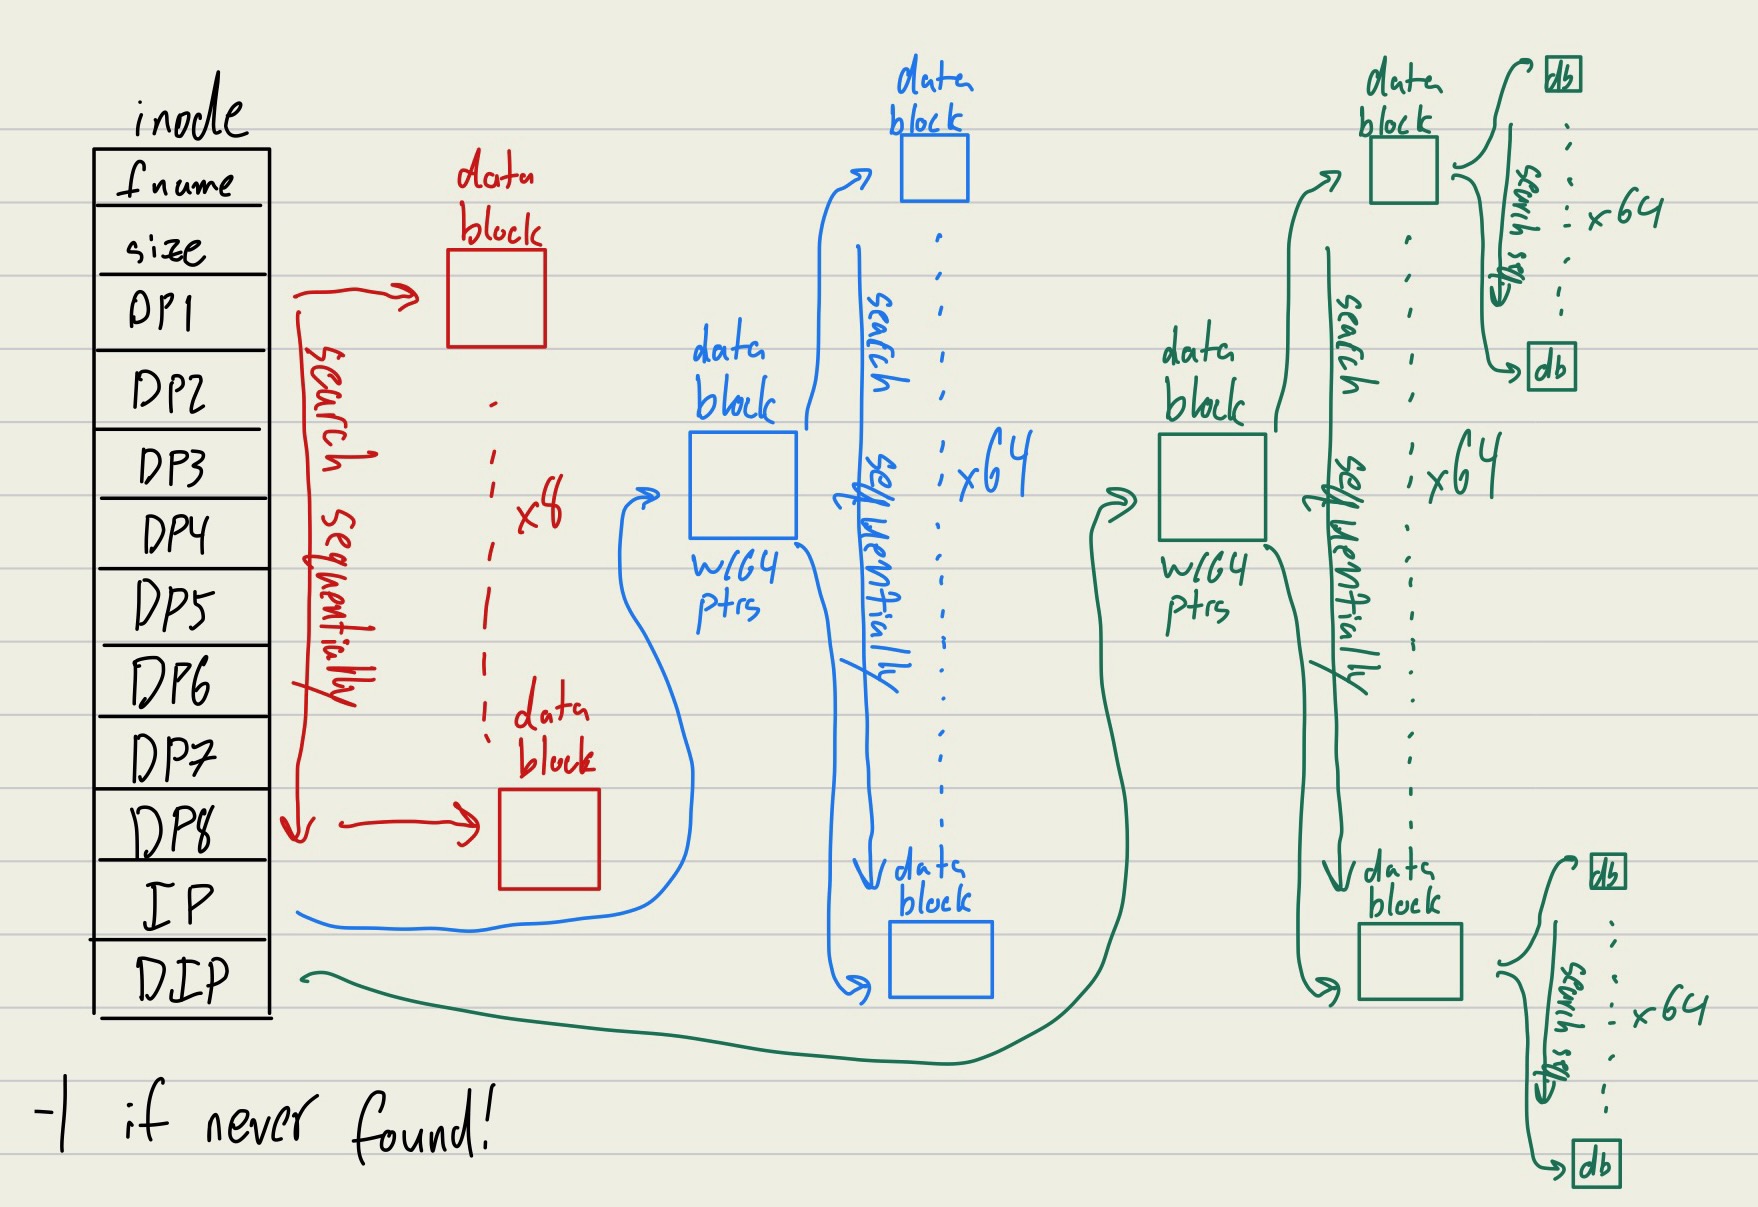 inode
fname
size
DP1
DP2
DP3
DP4
DP5
DP6
DP7
DP8
IP
DIP
-1 if never found!
data
block
search sequentially
x8
data
block
data
block
w/64
ptrs
data
block
search sequentially
x64
data
block
data
block
w/64
ptrs
data
block
search sequentially
x64
data
block
db
search seq
x64
db
db
search seq
x64
db